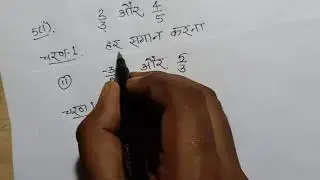 5(i). 2/3 और 4/5
चरण-1. हर समान करना
(ii) और 5/3
चरण 1